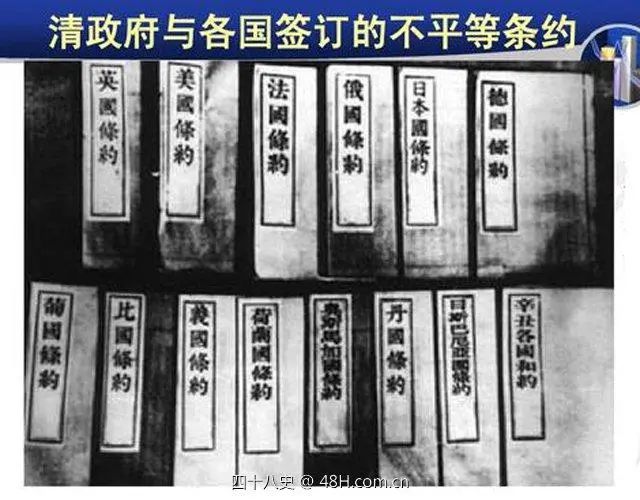 清政府与各国签订的不平等条约
英國條約
美國條約
法國條約
俄國條約
日本國條約
德國條約
葡國條約
比國條約
義國條約
荷蘭國條約
奧斯馬加國條約
丹國條約
日斯巴尼亞國條約
辛丑各國和約
四十八史 @ 48H.com.cn